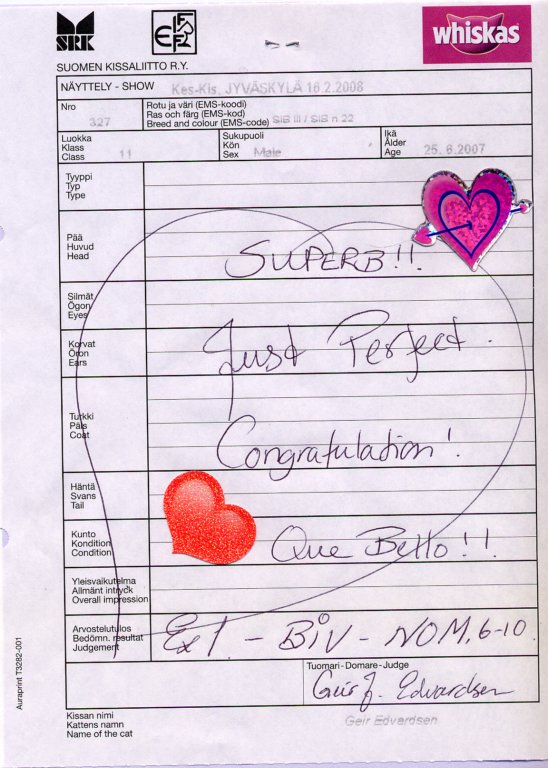 SRK
FIFe
whiskas
SUOMEN KISSALIITTO R.Y.
NÄYTTELY - SHOW Kes-Kis, JYVÄSKYLÄ 16.2.2008
Nro 327
Rotu ja väri (EMS-koodi)
Ras och färg (EMS-kod)
Breed and colour (EMS-code) SIB III / SIB n 22
Luokka
Klass
Class 11
Sukupuoli
Kön
Sex Male
Ikä
Ålder
Age 25.6.2007
Tyyppi
Typ
Type
Pää
Huvud
Head
SUPERB!!
Silmät
Ögon
Eyes
Korvat
Öron
Ears
Just Perfect.
Turkki
Päls
Coat
Congratulation!
Häntä
Svans
Tail
Kunto
Kondition
Condition
Que Bello!!
Yleisvaikutelma
Allmänt intryck
Overall impression
Arvostelutulos
Bedömn. resultat
Judgement
Ex1. - BIV - NOM. 6-10.
Tuomari - Domare - Judge
Geir J. Edvardsen
Geir Edvardsen
Kissan nimi
Kattens namn
Name of the cat
Auraprint T3282-001